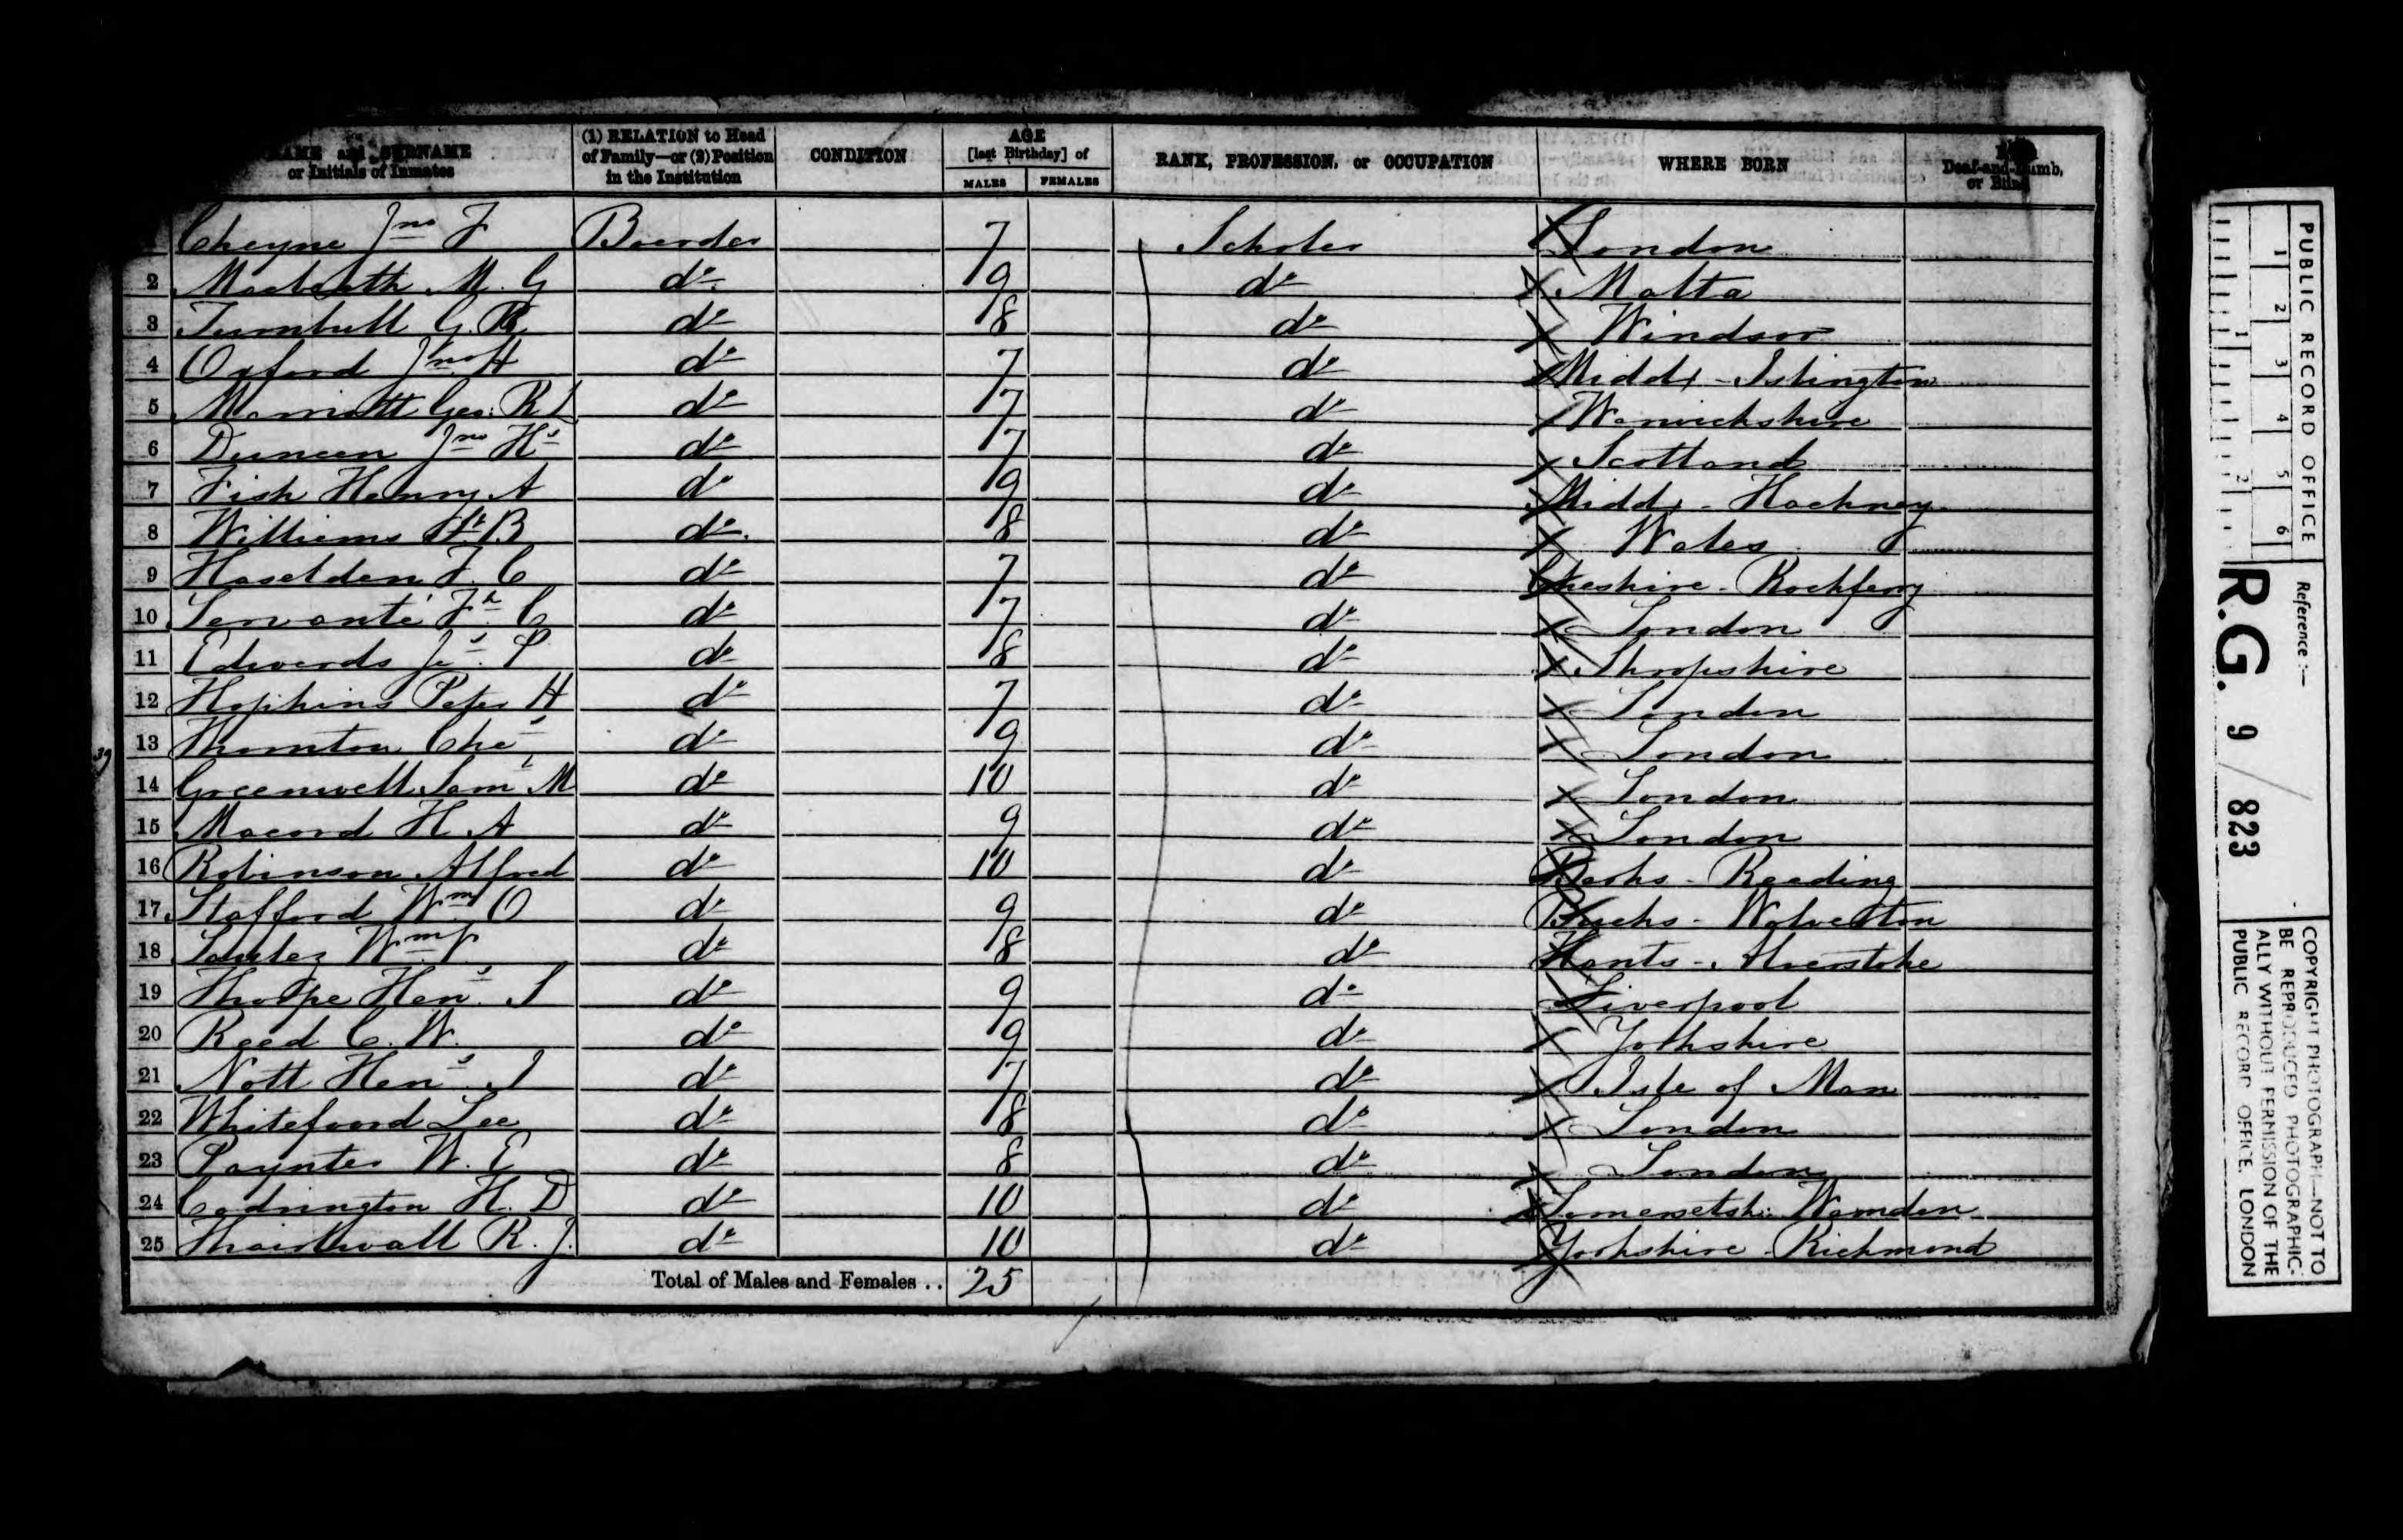 NAME and SURNAME or Initials of Inmates
(1) RELATION to Head of Family—or (2) Position in the Institution
CONDITION
AGE [last Birthday] of
MALES FEMALES
RANK, PROFESSION, or OCCUPATION
WHERE BORN
Deaf-and-Dumb, or Blind
Cheyne Jno F Boarder 7 Scholar London
2 Macbeath M. G do 9 do Malta
3 Turnbull G. R do 8 do Windsor
4 Oxford Jno H do 7 do Middx - Islington
5 Marriott Geo: R L do 7 do Warwickshire
6 Duncan Jno Hs do 7 do Scotland
7 Fish Henry A do 9 do Middx - Hackney
8 Williams B do 8 do Wales
9 Haselden F. C do 7 do Cheshire - Rockferry
10 Servanté Fk C do 7 do London
11 Edwards Js. P do 8 do Shropshire
12 Hopkins Peter H do 7 do London
13 Thornton Chas do 9 do London
14 Greenwell Saml M do 10 do London
15 Macord H. A do 9 do London
16 Robinson Alfred do 10 do Berks - Reading
17 Stafford Wm O do 9 do Bucks - Wolverton
18 Wm do 8 do Hants - Alverstoke
19 Thorpe Heny. S do 9 do Liverpool
20 Reed C. W. do 9 do Yorkshire
21 Nott Heny do 7 do Isle of Man
22 Whitefoord Lee do 8 do London
23 Paynter W. E do 8 do London
24 Codrington H. D do 10 do Somersetsh: Wemdon
25 Thairlwall R. J. do 10 do Yorkshire - Richmond
Total of Males and Females .. 25
39
PUBLIC RECORD OFFICE
1 2 3 4 5 6
1 2
Reference :—
R.G. 9 / 823
COPYRIGHT PHOTOGRAPH—NOT TO
BE REPRODUCED PHOTOGRAPHIC-
ALLY WITHOUT PERMISSION OF THE
PUBLIC RECORD OFFICE, LONDON